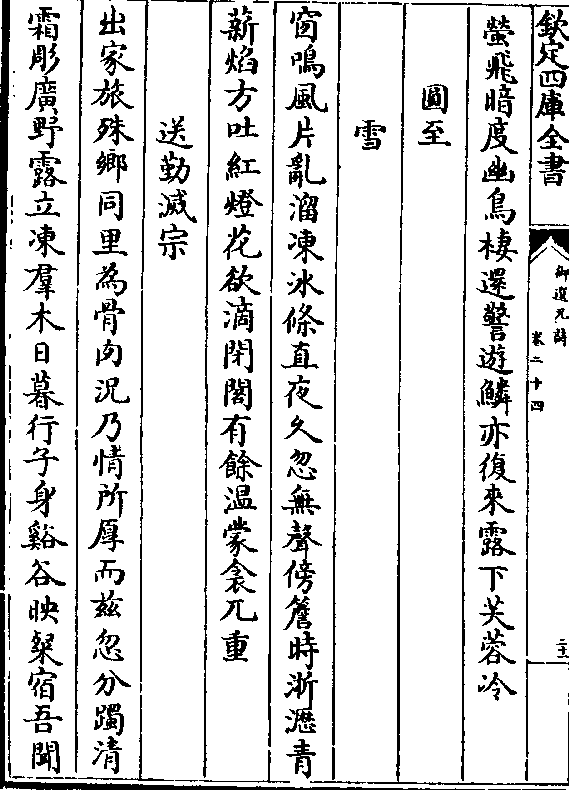 欽定四庫全書
御選元詩
卷二十四
二十二
螢飛暗度幽鳥棲還警遊鱗亦復來露下芙蓉冷
圓至
雪
窗鳴風片亂溜凍冰條直夜久忽無聲傍簷時淅瀝青
薪焰方吐紅燈花欲滴閉閣有餘温蒙衾兀重
送勤滅宗
出家旅殊鄉同里為骨肉況乃情所厚而兹忽分躅清
霜彫廣野露立凍羣木日暮行子身谿谷映粲宿吾聞